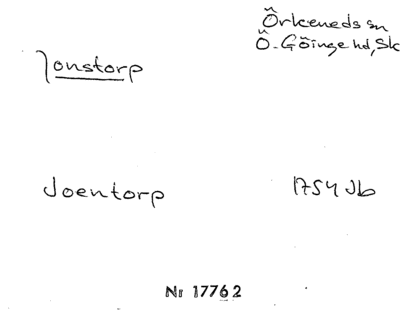 Örkeneds sn
Ö. Göinge hd, Sk
Jonstorp
Joentorp 1754 Jb
Nr 17762